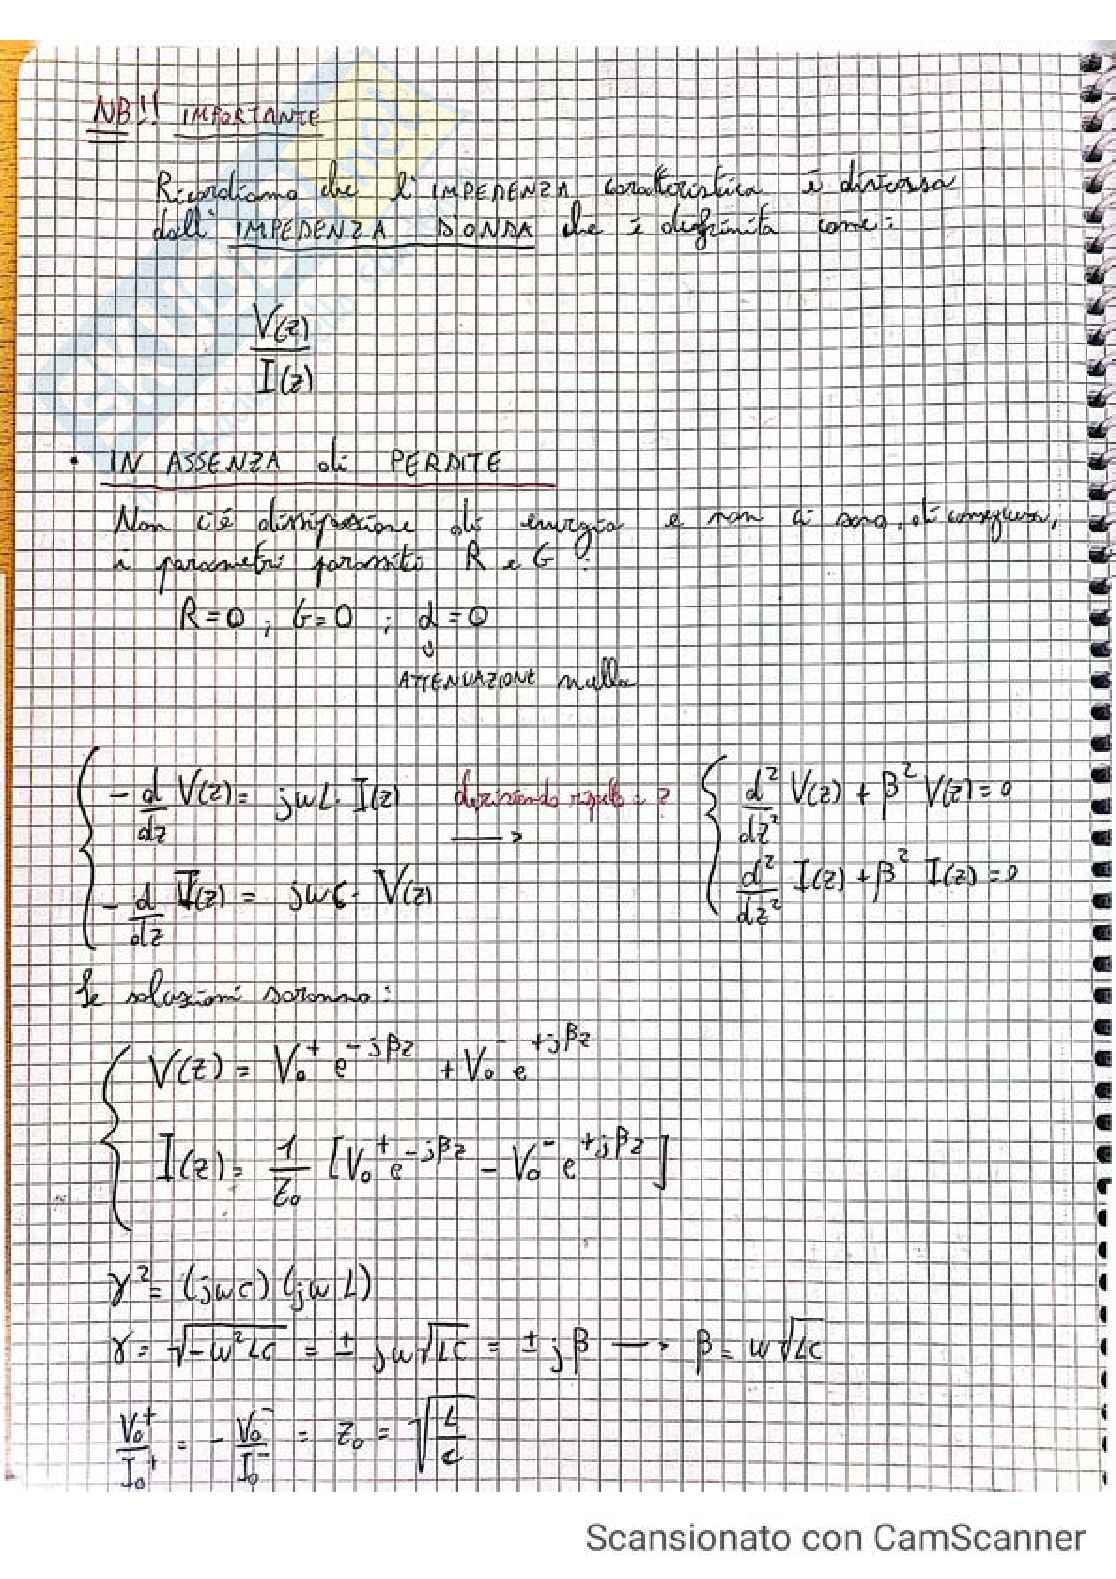 NB!! IMPORTANTE
Ricordiamo che l'IMPEDENZA caratteristica è diversa
dall'IMPEDENZA D'ONDA che è definita come:
V(z)
I(z)
• IN ASSENZA di PERDITE
Non c'è dissipazione di energia e non ci sono, di conseguenza,
i parametri parassiti R e G :
R=0 ; G=0 ; α=0
↓
ATTENUAZIONE nulla
- d/dz V(z) = jωL · I(z) derivando rispetto a z → d²/dz² V(z) + β² V(z) = 0
- d/dz I(z) = jωC · V(z) d²/dz² I(z) + β² I(z) = 0
Le soluzioni saranno:
V(z) = V₀⁺ e^-jβz + V₀⁻ e^+jβz
I(z) = 1/Z₀ [V₀⁺ e^-jβz - V₀⁻ e^+jβz]
γ² = (jωC) (jωL)
γ = √-ω²LC = ± jω√LC = ± jβ → β = ω√LC
V₀⁺/I₀⁺ = - V₀⁻/I₀⁻ = Z₀ = √L/C
Scansionato con CamScanner